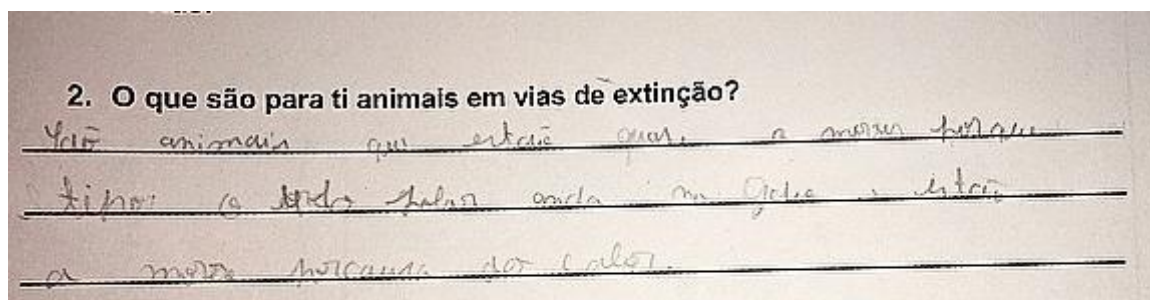 2. O que são para ti animais em vias de extinção?
São animais que estão quase a morrer porque
tipo: o urso polar anda no gelo e estão
a morrer porcausa dos calor.